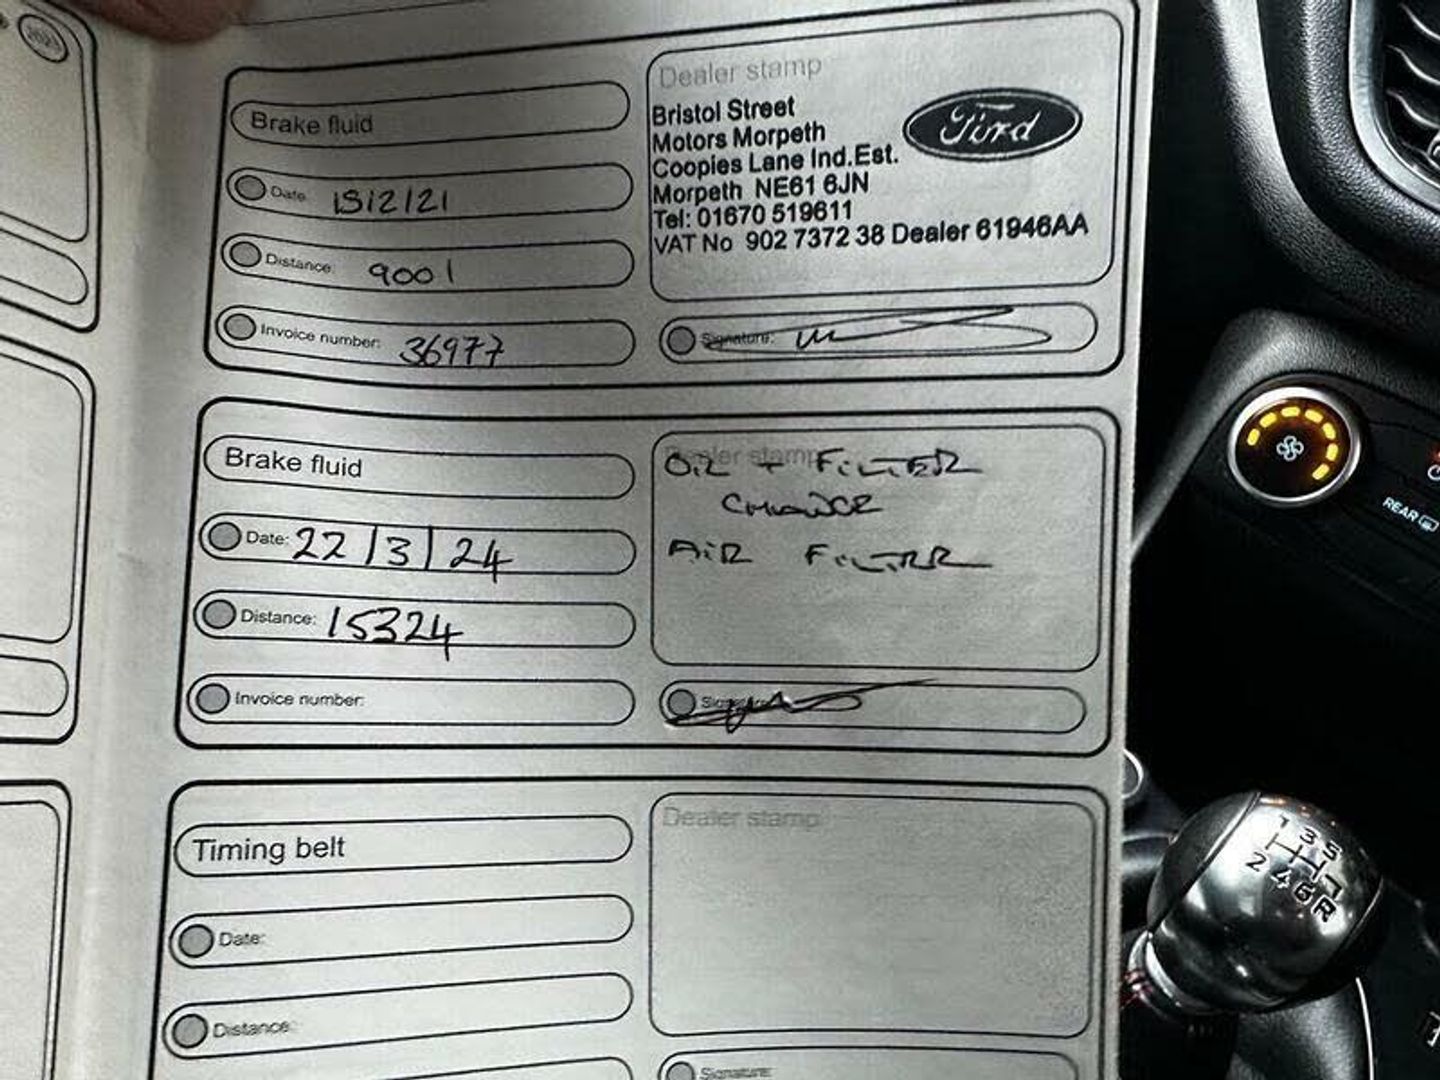 Brake fluid
Date: 15/2/21
Distance: 9001
Invoice number: 36977
Dealer stamp
Bristol Street
Motors Morpeth
Coopies Lane Ind.Est.
Morpeth NE61 6JN
Tel: 01670 519611
VAT No 902 7372 38 Dealer 61946AA
Ford
Signature:
Brake fluid
Date: 22/3/24
Distance: 15324
Invoice number:
Dealer stamp
OIL + FILTER
CHANGE
AIR FILTER
Signature:
Timing belt
Date:
Distance:
Dealer stamp
Signature:
REAR
1 3 5
2 4 6 R